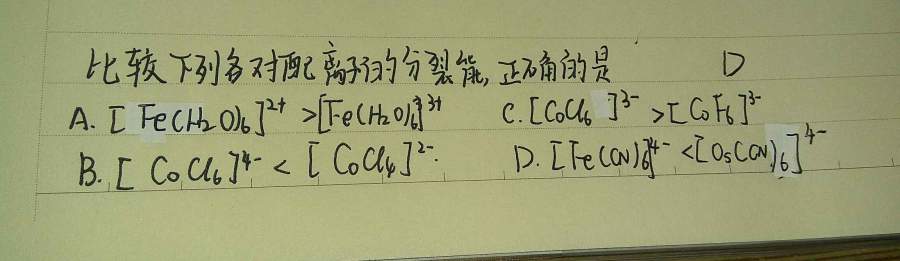 比较下列各对配离子的分裂能,正确的是 D
A. [Fe(H₂O)₆]²⁺ >[Fe(H₂O)₆]³⁺ C. [CoCl₆]³⁻ >[CoF₆]³⁻
B. [CoCl₆]⁴⁻ < [CoCl₄]²⁻. D. [Fe(CN)₆]⁴⁻ <[Os(CN)₆]⁴⁻